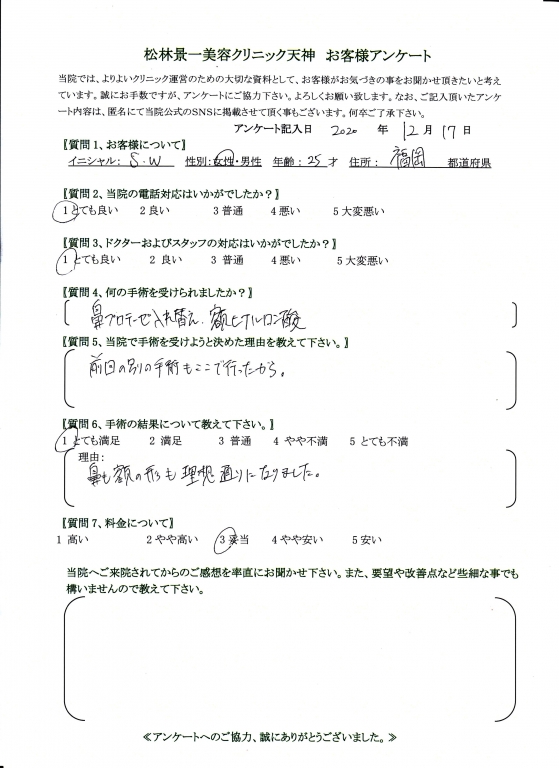 松林景一美容クリニック天神　お客様アンケート
当院では、よりよいクリニック運営のための大切な資料として、お客様がお気づきの事をお聞かせ頂きたいと考え
ています。誠にお手数ですが、アンケートにご協力下さい。よろしくお願い致します。なお、ご記入頂いたアンケ
ート内容は、匿名にて当院公式のSNSに掲載させて頂く事もございます。何卒ご了承下さい。
アンケート記入日　2020　年　12月17日
【質問1、お客様について】
イニシャル： S．W　性別：女性・男性　年齢：25才　住所：　福岡　都道府県
【質問2、当院の電話対応はいかがでしたか？】
1とても良い　2 良い　3 普通　4 悪い　5 大変悪い
【質問3、ドクターおよびスタッフの対応はいかがでしたか？】
1とても良い　2 良い　3 普通　4悪い　5 大変悪い
【質問4、何の手術を受けられましたか？】
鼻プロテーゼ入れ替え、額ヒアルロン酸
【質問5、当院で手術を受けようと決めた理由を教えて下さい。】
前回の別の手術もここで行ったから。
【質問6、手術の結果について教えて下さい。】
1とても満足　2 満足　3 普通　4 やや不満　5 とても不満
理由：
鼻も額の形も理想通りになりました。
【質問7、料金について】
1 高い　2 やや高い　3 妥当　4 やや安い　5 安い
当院へご来院されてからのご感想を率直にお聞かせ下さい。また、要望や改善点など些細な事でも
構いませんので教えて下さい。
≪アンケートへのご協力、誠にありがとうございました。≫